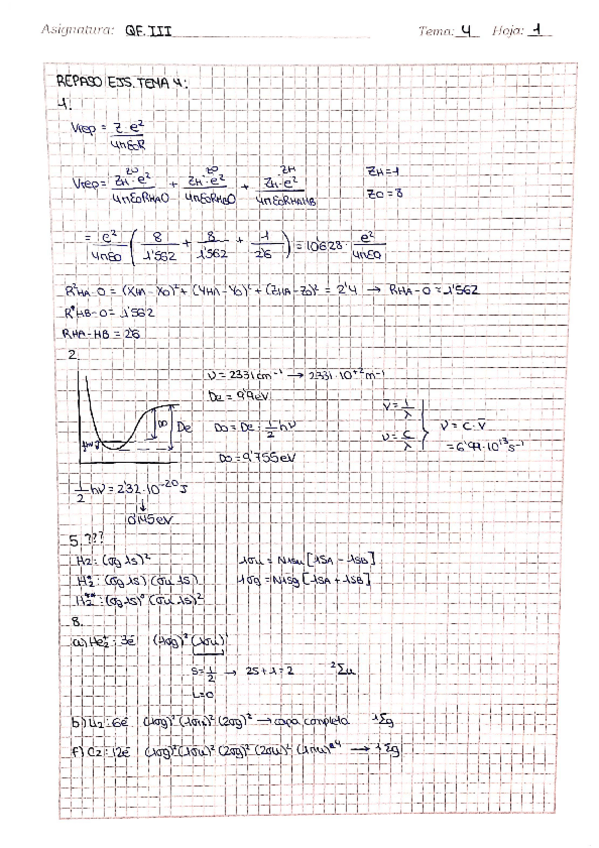 Asignatura: QF.III Tema: 4 Hoja: 1
REPASO EJS. TEMA 4:
Vrep = Z·e² / 4πε0R
Vrep = ZO ZH·e² / 4πε0RHAO + ZO ZH·e² / 4πε0RHBO + ZH ZH·e² / 4πε0RHAHB ZH=1
ZO=8
= e² / 4πε0 ( 8 / 1'562 + 8 / 1'562 + 1 / 2'6 ) = 10'628 · e² / 4πε0
R²HA-O = (XHA-XO)²+(YHA-YO)²+(ZHA-ZO)² = 2'4 → RHA-O = 1'562
R²HB-O = 1'562
RHA-HB = 2'6
2.
ν = 2331cm⁻¹ → 2331·10⁺²m⁻¹
De = 9'9eV
ν̄ = 1/λ
D0 De D0 = De - 1/2 hν ν = c/λ } ν = c·ν̄
= 6'99·10¹³s⁻¹
D0 = 9'755eV
1/2 hν = 2'32·10⁻²⁰J
↓
0'145eV
5. ???
H2: (σg 1s)² 1σu = N1su [1SA - 1SB]
H2*: (σg 1s) (σu 1s) 1σg = N1sg [1SA + 1SB]
H2**: (σg 1s)⁰ (σu 1s)²
8.
a) He2⁺: 3e⁻ (1σg)² (1σu)¹
S=1/2 → 2S+1=2 ²Σu
L=0
b) Li2: 6e⁻ (1σg)² (1σu)² (2σg)² → capa completa ¹Σg
f) C2: 12e⁻ (1σg)² (1σu)² (2σg)² (2σu)² (1πu)⁴ → ¹Σg